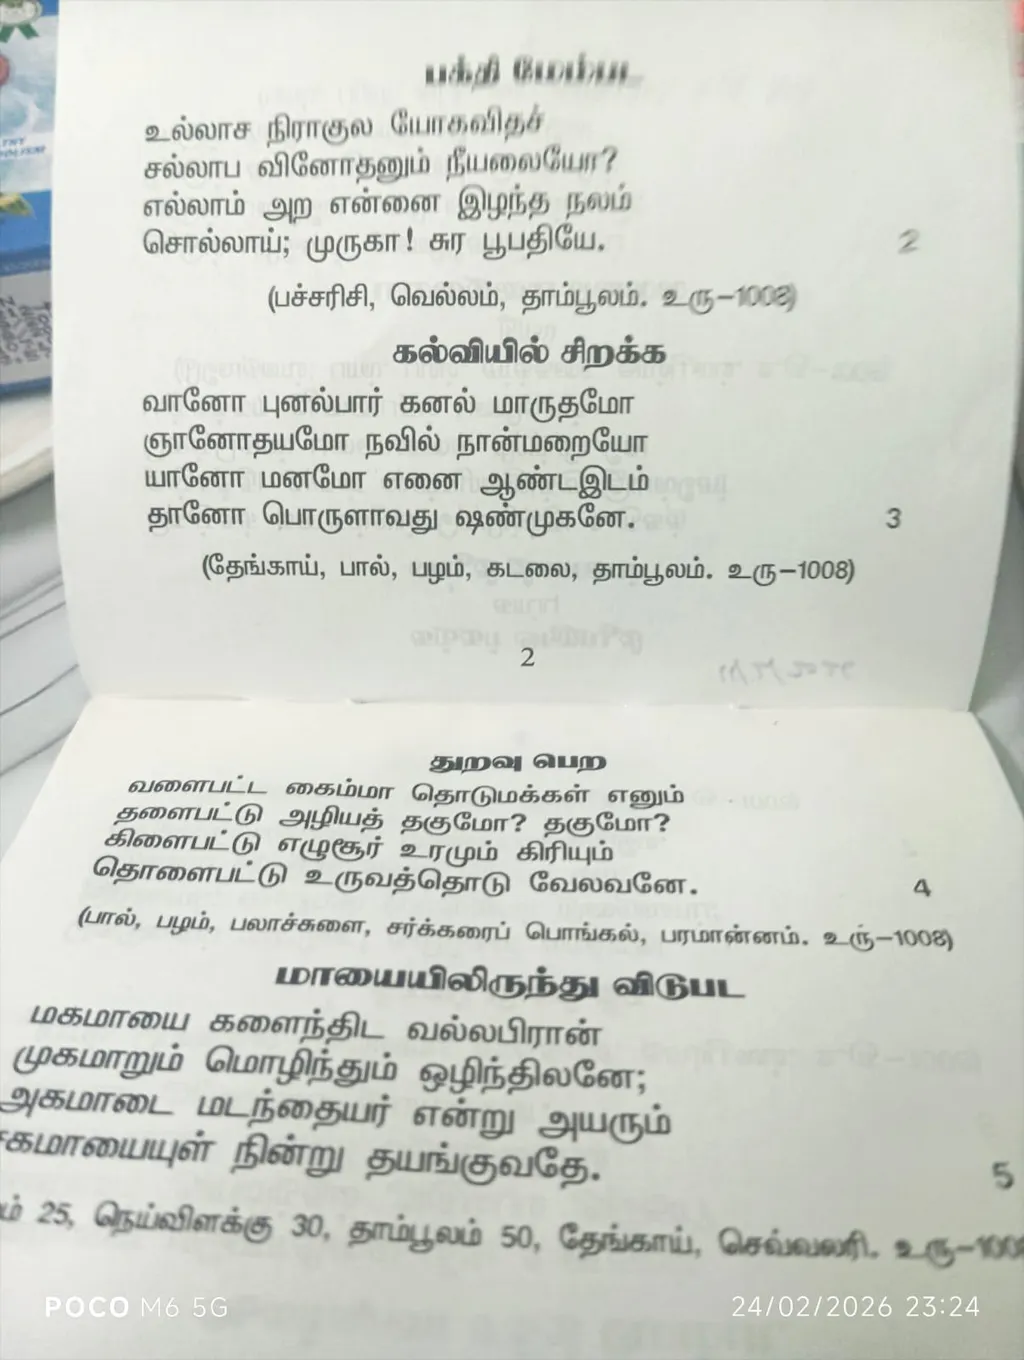 பக்தி மேம்பட
உல்லாச நிராகுல யோகவிதச்
சல்லாப வினோதனும் நீயலையோ?
எல்லாம் அற என்னை இழந்த நலம்
சொல்லாய்; முருகா! சுர பூபதியே. 2
(பச்சரிசி, வெல்லம், தாம்பூலம். உரு-1008)
கல்வியில் சிறக்க
வானோ புனல்பார் கனல் மாருதமோ
ஞானோதயமோ நவில் நான்மறையோ
யானோ மனமோ எனை ஆண்டஇடம்
தானோ பொருளாவது ஷண்முகனே. 3
(தேங்காய், பால், பழம், கடலை, தாம்பூலம். உரு-1008)
2
துறவு பெற
வளைபட்ட கைம்மா தொடுமக்கள் எனும்
தளைபட்டு அழியத் தகுமோ? தகுமோ?
கிளைபட்டு எழுசூர் உரமும் கிரியும்
தொளைபட்டு உருவத்தொடு வேலவனே. 4
(பால், பழம், பலாச்சுளை, சர்க்கரைப் பொங்கல், பரமான்னம். உரு-1008)
மாயையிலிருந்து விடுபட
மகமாயை களைந்திட வல்லபிரான்
முகமாறும் மொழிந்தும் ஒழிந்திலனே;
அகமாடை மடந்தையர் என்று அயரும்
சகமாயையுள் நின்று தயங்குவதே. 5
25, நெய்விளக்கு 30, தாம்பூலம் 50, தேங்காய், செவ்வலரி. உரு-1008
POCO M6 5G
24/02/2026 23:24